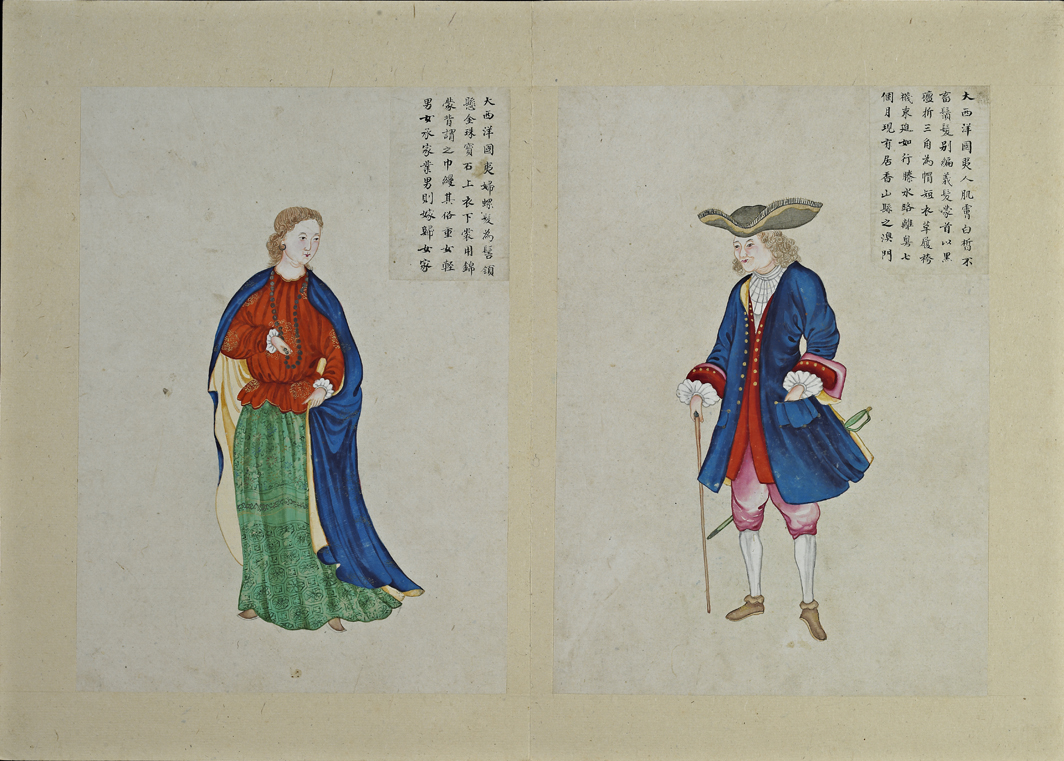 大西洋國夷人肌膚白晳不
畜鬚髮別編義髮蒙首以黑
氊折三角為帽短衣革履袴
襪束廹如行縢水路離粤七
個月現有居香山縣之澳門
大西洋國夷婦螺髮為髻領
懸金珠寶石上衣下裳用錦
蒙背謂之巾纏其俗重女輕
男女承家業男則嫁歸女家